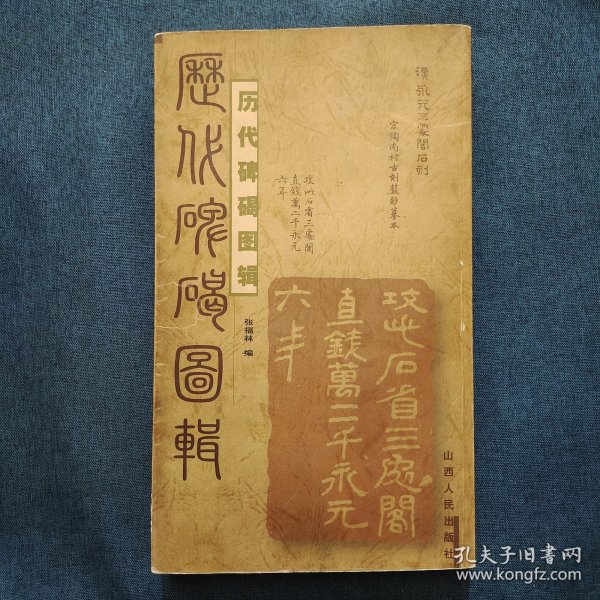 歷代碑碣圖輯
历代碑碣图辑
张福林 编
漢永元三處閣石刻
宗陶南村古刻叢鈔摹本
攻此石省三處閣
直錢萬二千永元
六年
攻此石省三處閣
直錢萬二千永元
六年
山西人民出版社
孔夫子旧书网
www.kongfz.com